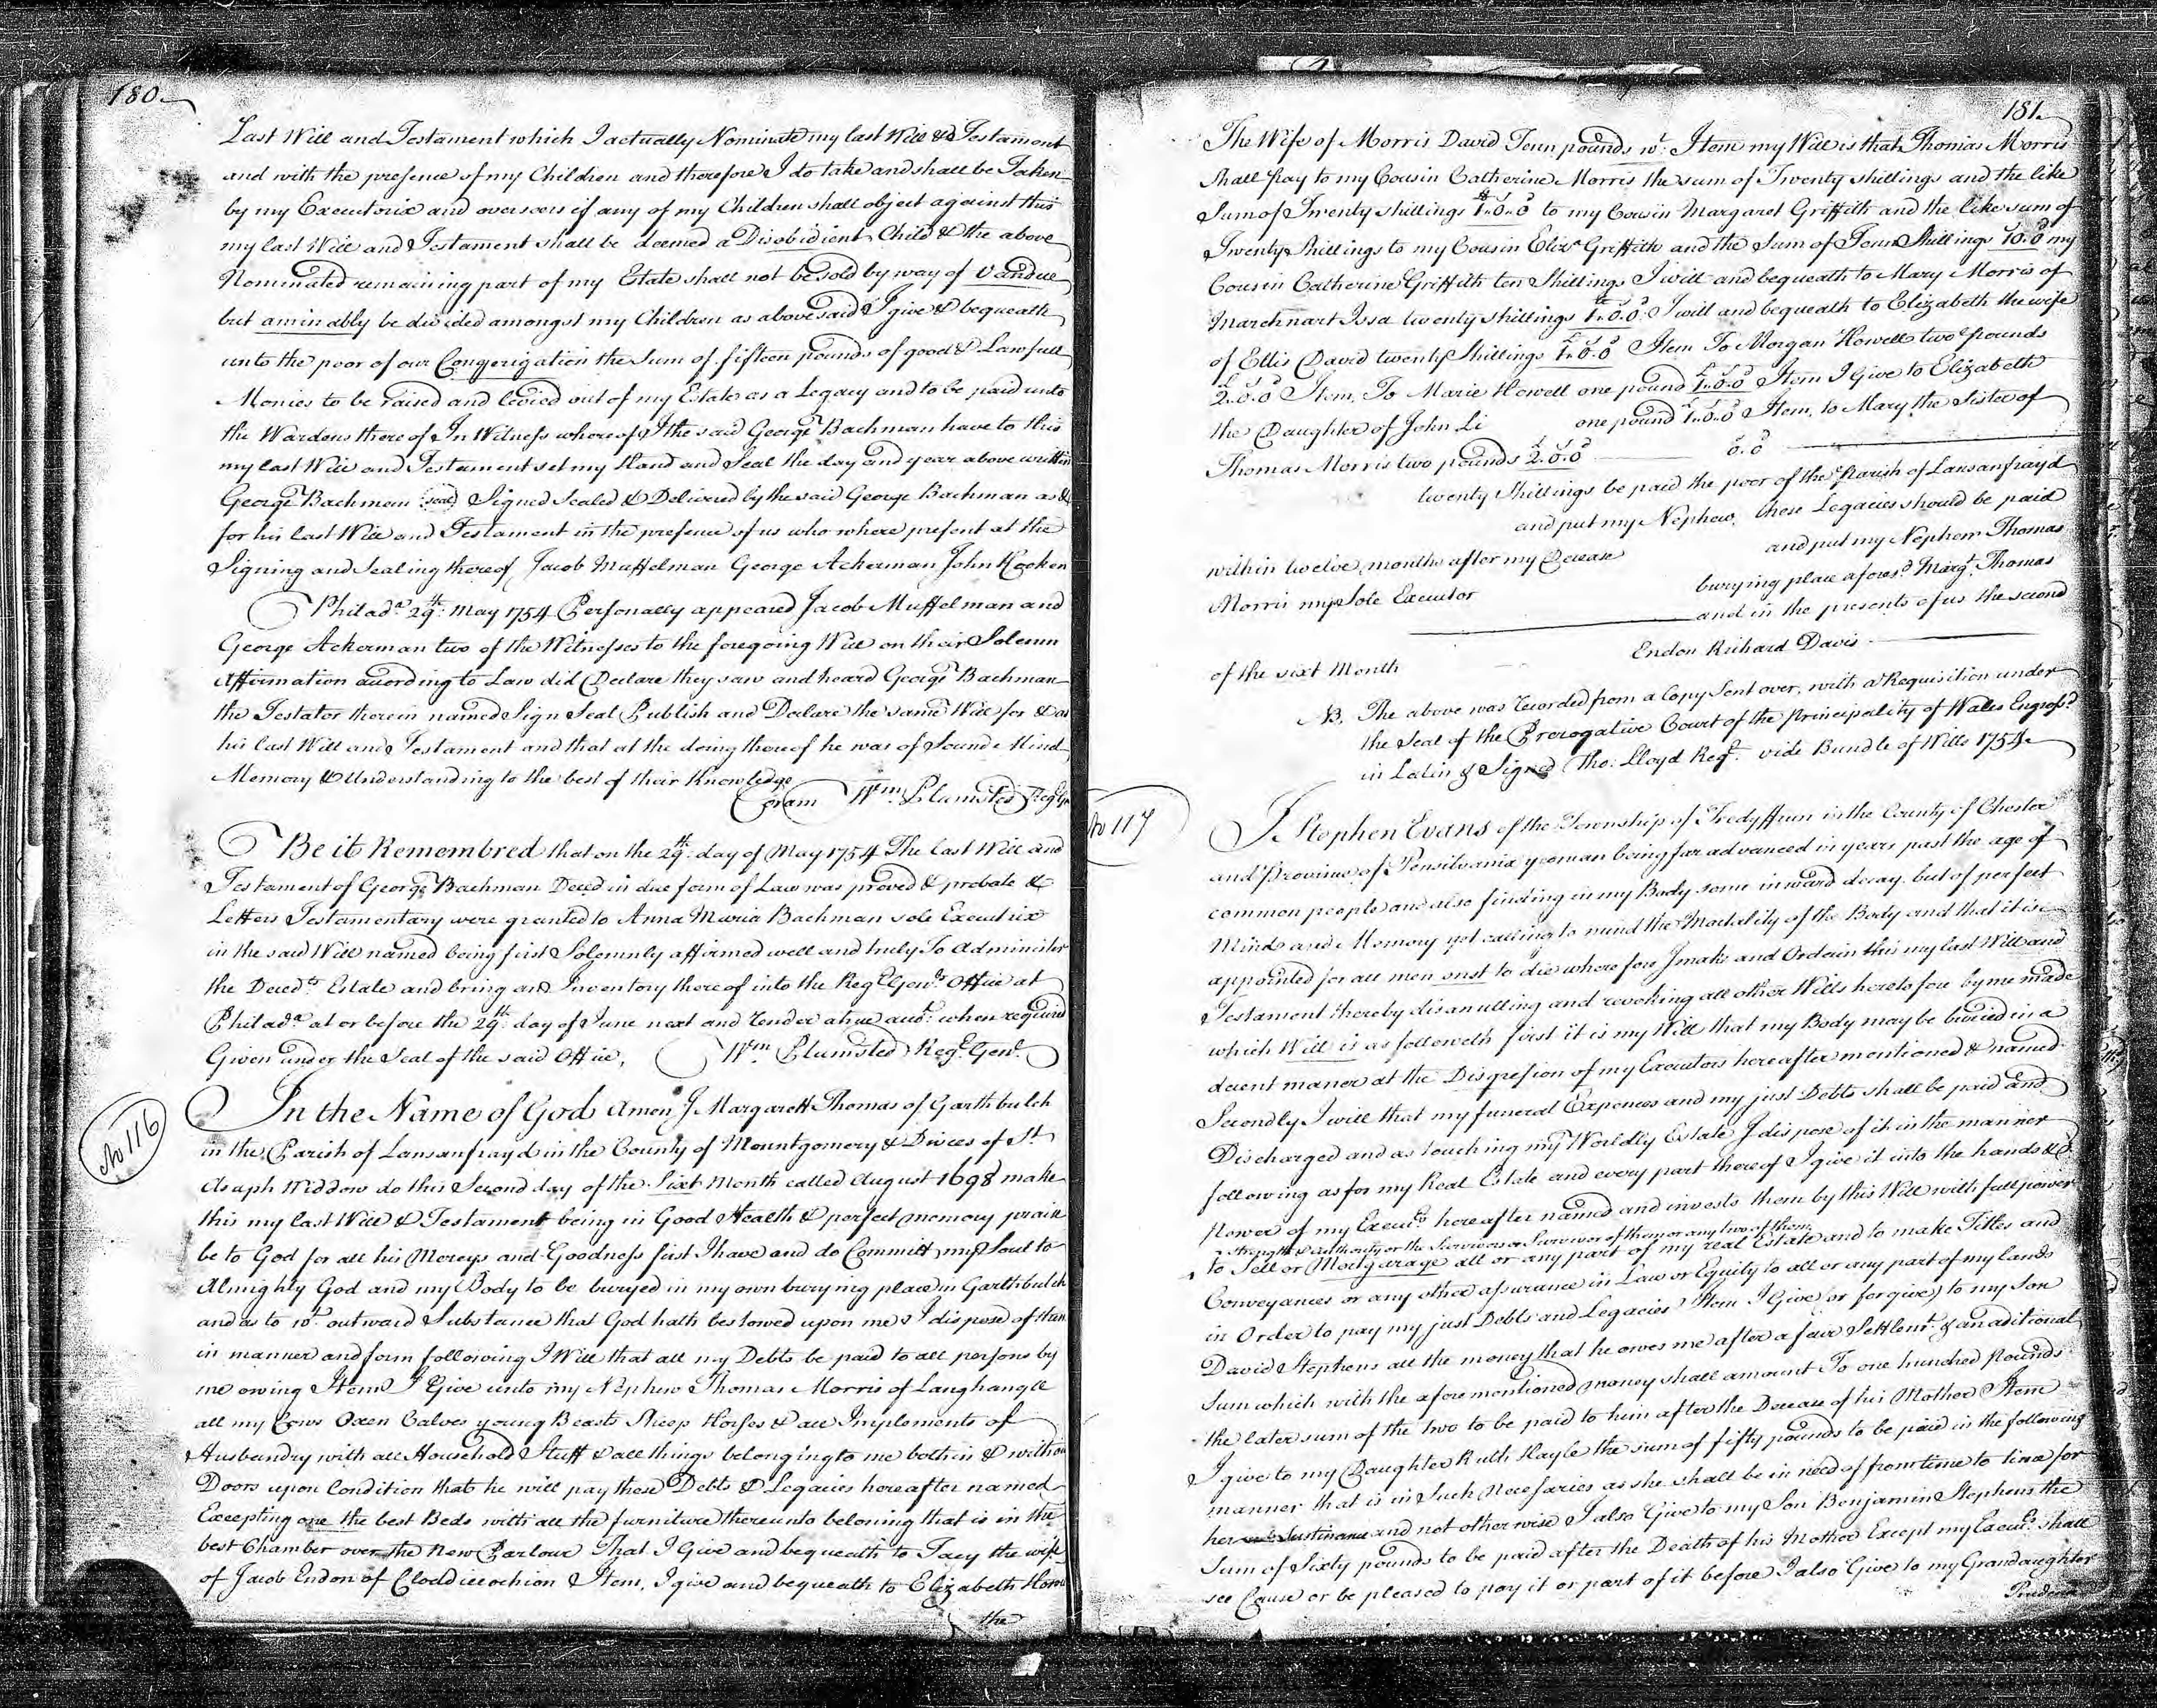 180
Last Will and Testament which I actually Nominate my last Will & Testament
and with the presence of my Children and therefore I do take and shall be Taken
by my Executorix and overseers if any of my Children shall object against this
my last Will and Testament shall be deemed a Disobidient Child & the above
Nominated remaining part of my Estate shall not be sold by way of Vandue
but aminably be divided amongst my Children as above said I give & bequeath
unto the poor of our Congerigation the Sum of fifteen pounds of good & Lawfull
Monies to be raised and levied out of my Estate as a Legacy and to be paid unto
the Wardens thereof In Witness whereof I the said George Bachman have to this
my last Will and Testament set my Hand and Seal the day and year above written
George Bachman (seal) Signed Sealed & Delivered by the said George Bachman as &
for his last Will and Testament in the presence of us who where present at the
Signing and Sealing thereof Jacob Musselman George Ackerman John Hooken
Philad.a 29th: May 1754 Personally appeared Jacob Musselman and
George Ackerman two of the Witnesses to the foregoing Will on their Solemn
Affirmation according to Law did Declare they saw and heard George Bachman
the Testator therein named Sign Seal Publish and Declare the same Will for & as
his last Will and Testament and that at the doing thereof he was of Sound Mind
Memory & Understanding to the best of their Knowledge
Coram Wm. Plumsted Reg.r Gen
Be it Remembred that on the 29th: day of May 1754 The last Will and
Testament of George Bachman Deced in due form of Law was proved & probate &
Letters Testamentary were granted to Anna Maria Bachman sole Executrix
in the said Will named being first Solemnly affirmed well and truly To administer
the Deced.ts Estate and bring an Inventory thereof into the Reg.r Gen.ls Office at
Philad.a at or before the 29th: day of June next and render a true acct: when required
Given under the Seal of the said Office, Wm Plumsted Reg.r Gen.l
No 116
In the Name of God Amen I Margarett Thomas of Garthbulch
in the Parish of Lansanfrayd in the County of Mountgomery & Dioces of St.
Asaph Widdow do this Second day of the Sixt Month called August 1698 make
this my last Will & Testament being in Good Health & perfect memory praise
be to God for all his Mercys and Goodness first I have and do Committ my Soul to
Almighty God and my Body to be buryed in my own burying place in Garthbulch
and as to wt. outward Substance that God hath bestowed upon me I dispose of them
in manner and form following I Will that all my Debts be paid to all persons by
me owing Item I Give unto my Nephew Thomas Morris of Langhangle
all my Cows Oxen Calves young Beasts Sheep Horses & all Implements of
Husbandry with all Household Stuff & all things belonging to me both in & without
Doors upon Condition that he will pay these Debts & Legacies hereafter named
Excepting one the best Beds with all the furniture thereunto beloning that is in the
best Chamber over the New Parlour That I Give and bequeath to Jacy the wife
of Jacob Endon of Item, I give and bequeath to Elizabeth
the
181
The Wife of Morris David Tenn pounds wt. Item my Will is that Thomas Morris
Shall pay to my Cousin Catherine Morris the sum of Twenty shillings and the like
Sum of Twenty shillings £1.0.0 to my Cousin Margaret Griffith and the like sum of
Twenty Shillings to my Cousin Eliza Griffith and the Sum of Tenn Shillings 10.0 my
Cousin Catherine Griffith ten Shillings I will and bequeath to Mary Morris of
Marchnart Issa twenty shillings £1.0.0 I will and bequeath to Elizabeth the wife
of Ellis David twenty Shillings £1.0.0 Item To Morgan Howell two pounds
£2.0.0 Item, To Marie Howell one pound £1.0.0 Item I Give to Elizabeth
the Daughter of John Li one pound £1.0.0 Item, to Mary the Sister of
Thomas Morris two pounds £2.0.0 0.0
twenty Shillings be paid the poor of the Parish of Lansanfrayd
and put my Nephew, these Legacies should be paid
within twelve months after my Decease and put my Nephew Thomas
Morris my Sole Executor burying place afores.d Marg.t Thomas
and in the presents of us the second
of the sixt Month Endon Richard Davis
NB. The above was recorded from a Copy Sent over, with a Requisition under
the Seal of the Prerogative Court of the Principality of Wales Engross.d
in Latin & Signed Tho: Lloyd Reg.r vide Bundle of Wills 1754
No 117
I Stephen Evans of the Township of Tredyffrin in the County of Chester
and Province of Pensilvania yeoman being far advanced in years past the age of
common people and also finding in my Body some inward decay but of perfect
Mind and Memory yet calling to mind the Mortality of the Body and that it is
appointed for all men onst to die wherefore I make and Ordain this my last Will and
Testament thereby disanulling and revoking all other Wills heretofore by me made
which Will is as followeth first it is my Will that my Body may be buried in a
decent maner at the Disgresion of my Executors hereafter mentioned & named
Secondly I will that my funeral Expences and my just Debts shall be paid and
Discharged and as touching my Worldly Estate I dispose of it in the manner
following as for my Real Estate and every part thereof I give it into the hands &
Power of my Execu.rs hereafter named and invests them by this Will with full power
strength & authority or the Survivors or Survivor of them or any two of them
to Sell or Mortgarage all or any part of my real Estate and to make Titles and
Conveyances or any other assurance in Law or Equity to all or any part of my lands
in Order to pay my just Debts and Legacies Item I Give (or forgive) to my Son
David Stephens all the money that he owes me after a fair Settlemt. & an aditional
Sum which with the aforementioned money shall amount To one hundred Pounds
the later sum of the two to be paid to him after the Decease of his Mother Item
I give to my Daughter Ruth Hayle the sum of fifty pounds to be paid in the following
manner that is in Such Necessaries as she shall be in need of from time to time for
her Sustinance and not otherwise I also Give to my Son Benjamin Stephens the
Sum of Sixty pounds to be paid after the Death of his Mother Except my Execu.rs shall
see Cause or be pleased to pay it or part of it before I also Give to my Grandaughter